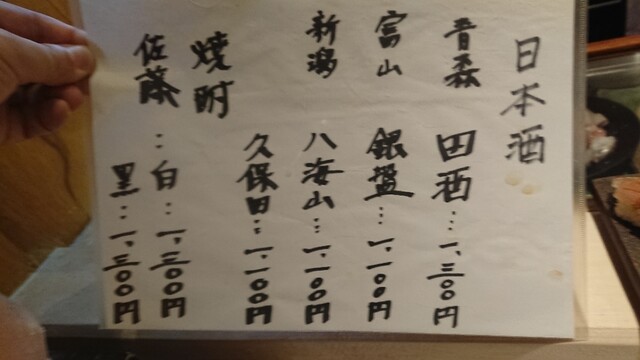 日本酒
青森 田酒…一、三〇〇円
富山 銀盤…一、一〇〇円
新潟 八海山…一、一〇〇円
久保田…一、一〇〇円
焼酎
佐藤…白…一、三〇〇円
黒…一、三〇〇円